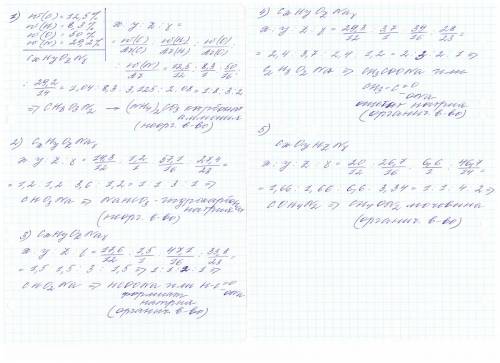 1) w(C) = 12,5%
w(H) = 8,3%
w(O) = 50%
w(N) = 29,2%
CxHyOzNt
x : y : z : t =
= w(C)/Ar(C) : w(H)/Ar(H) : w(O)/Ar(O) :
: w(N)/Ar = 12,5/12 : 8,3/1 : 50/16 :
: 29,2/14 = 1,04 : 8,3 : 3,125 : 2,08 = 1:8:3:2
⇒ CH8O3N2 → (NH4)2CO3 карбонат
аммония
(неорг. в-во)
2) CxHyOzNat
x : y : z : t = 14,3/12 : 1,2/1 : 57,1/16 : 27,4/23 =
= 1,2 : 1,2 : 3,6 : 1,2 = 1 : 1 : 3 : 1 ⇒
CHO3Na ⇒ NaHCO3 - гидрокарбонат
натрия
(неорг. в-во)
3) CxHyOzNat
x : y : z : t = 17,6/12 : 1,5/1 : 47,1/16 : 33,8/23 =
= 1,5 : 1,5 : 3 : 1,5 ⇒ 1 : 1 : 2 : 1 ⇒
CHO2Na ⇒ HCOONa или H-C=O
ONa
формиат
натрия
(органич в-во)
4) CxHyOzNat
x : y : z : t = 29,3/12 : 3,7/1 : 39/16 : 28/23 =
= 2,4 : 3,7 : 2,4 : 1,2 = 2 : 3 : 2 : 1 ⇒
C2H3O2Na ⇒ CH3COONa или
CH3-C=O
ONa
ацетат натрия
(органич в-во)
5)
CxOyHzNt
x : y : z : t = 20/12 : 26,7/16 : 6,6/1 : 46,7/14 =
= 1,66 : 1,66 : 6,6 : 3,34 = 1 : 1 : 4 : 2 ⇒
COH4N2 ⇒ CH4ON2 мочевина
(органич в-во)